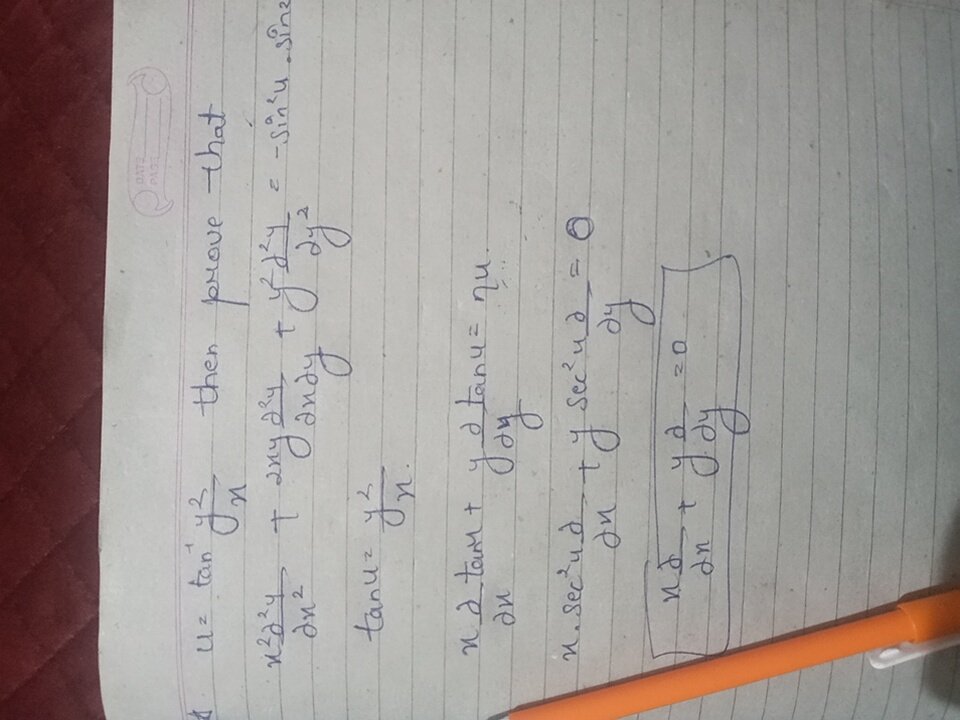 DATE
PAGE
u = tan⁻¹ y²/x then prove that
x² ∂²y/∂x² + 2xy ∂²y/∂x∂y + y² ∂²y/∂y² = -sin²u . sin2
tanu = y²/x .
x ∂/∂x tanu + y ∂/∂y tanu = nu.
x . sec²u ∂/∂x + y sec²u ∂/∂y = 0
x ∂/∂x + y ∂/∂y = 0